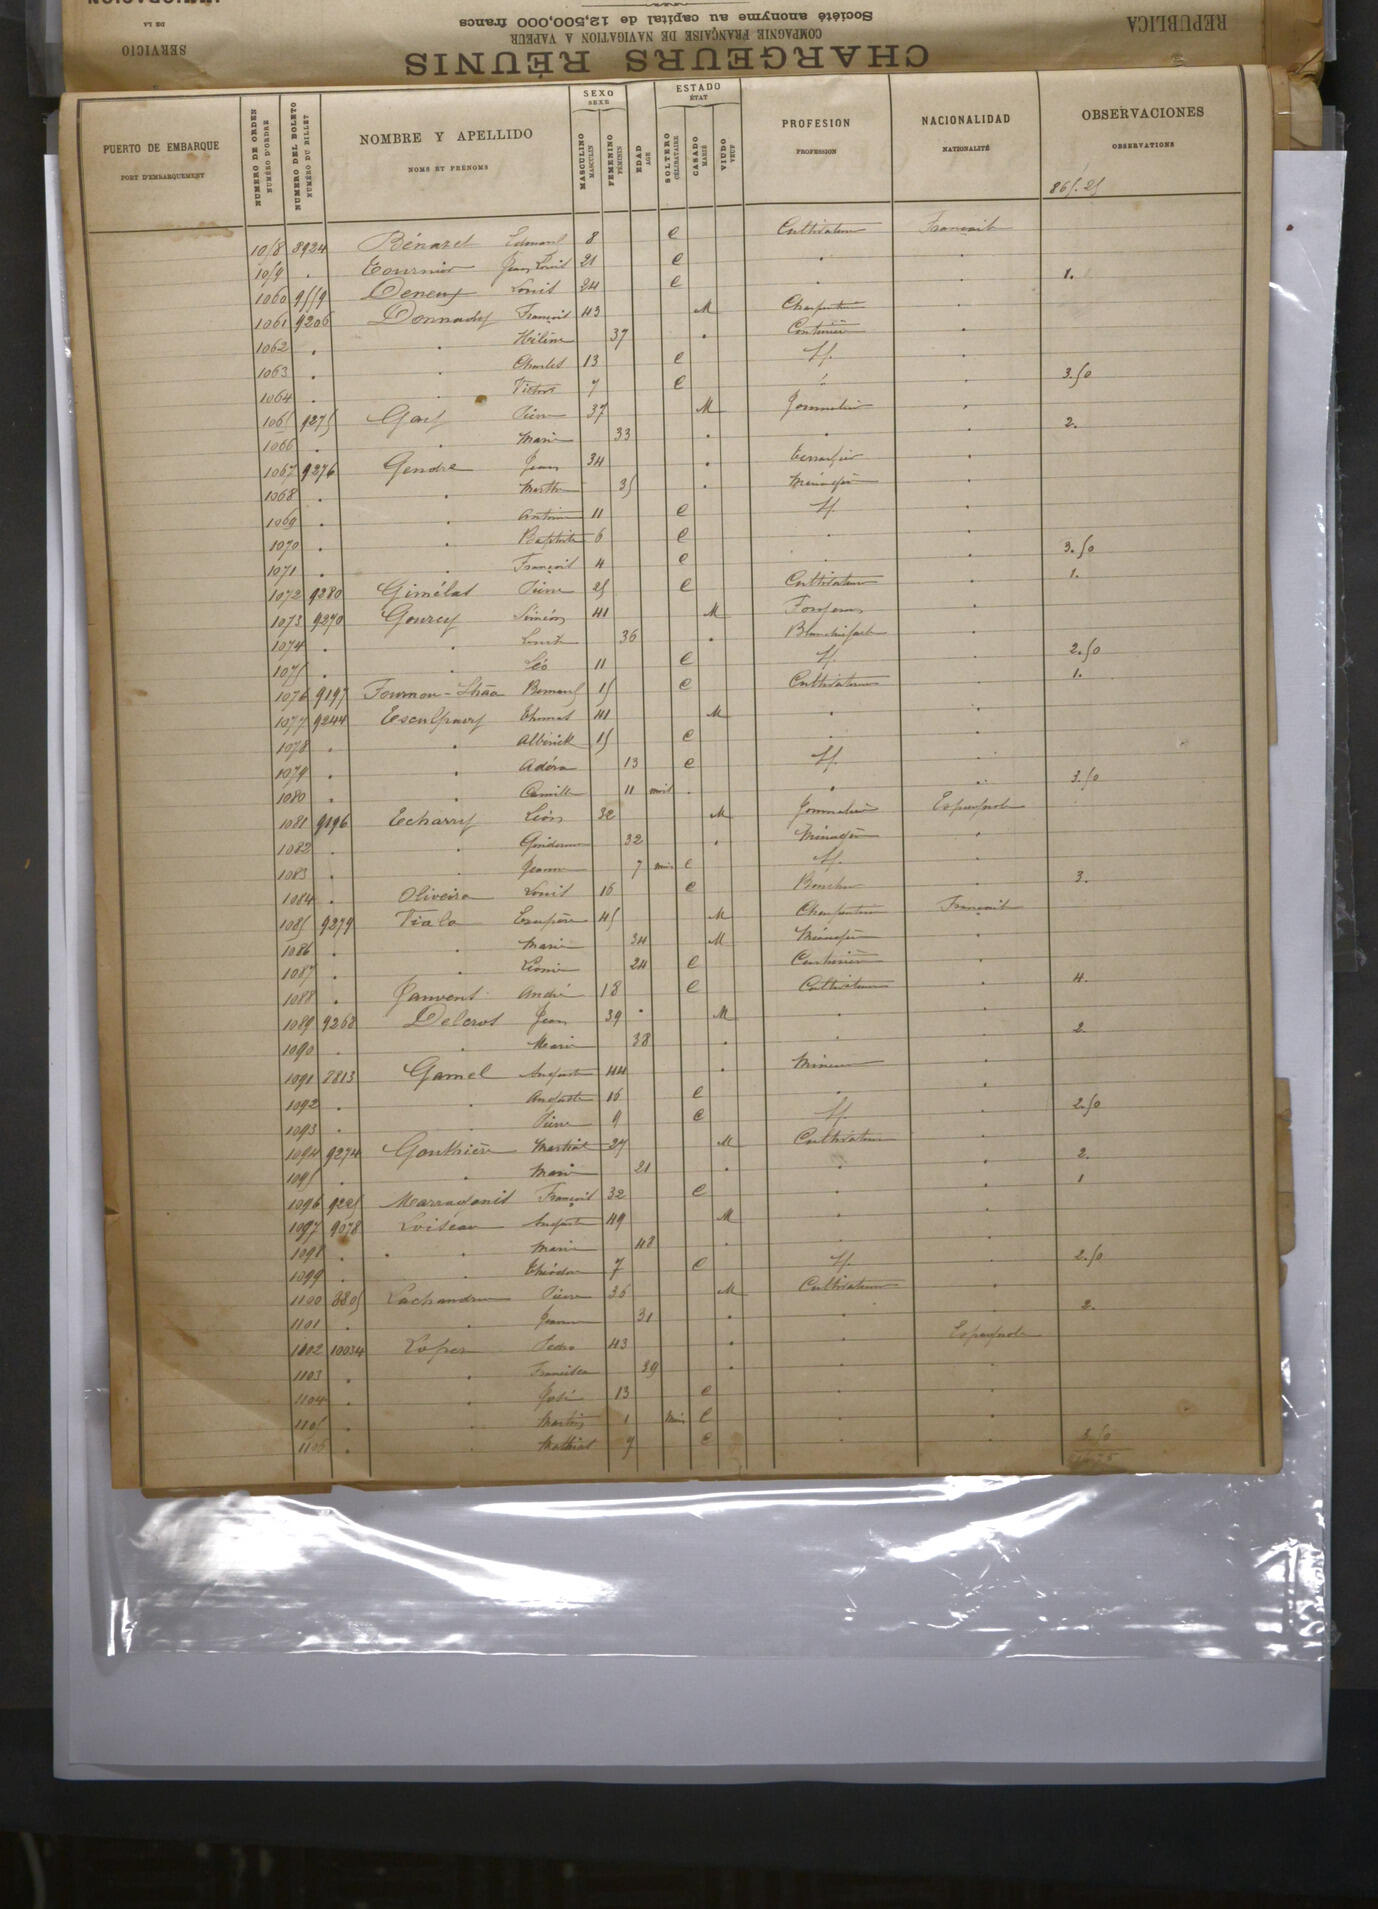 CHARGEURS RÉUNIS
COMPAGNIE FRANÇAISE DE NAVIGATION A VAPEUR
Société anonyme au capital de 12,500,000 francs
REPUBLICA
SERVICIO
DE LA
PUERTO DE EMBARQUE
PORT D'EMBARQUEMENT
NUMERO DE ORDEN
NUMÉRO D'ORDRE
NUMERO DEL BOLETO
NUMÉRO DU BILLET
NOMBRE Y APELLIDO
NOMS ET PRÉNOMS
SEXO
SEXE
MASCULINO
MASCULIN
FEMENINO
FÉMININ
EDAD
AGE
ESTADO
ÉTAT
SOLTERO
CÉLIBATAIRE
CASADO
MARIÉ
VIUDO
VEUF
PROFESION
PROFESSION
NACIONALIDAD
NATIONALITÉ
OBSERVACIONES
OBSERVATIONS
865.25
1058 8924 Bénazet Edmond 8 C Cultivateur Français
1059 . Tournier Jean Louis 21 C . .
1060 9559 Deneux Louis 24 C . . 1.
1061 9206 Donnady François 43 M Charpentier .
1062 . . Hélène 37 . Couturière .
1063 . . Charles 13 C Sf. .
1064 . . Victor 7 C . . 3.50
1065 9275 Pierre 37 M Journalier .
1066 . . Marie 33 . . . 2.
1067 9276 Gendre Jean 34 . Terrassier .
1068 . . Marthe 35 . Ménagère .
1069 . . Antoine 11 C Sf. .
1070 . . Baptiste 6 C . .
1071 . . François 4 C . . 3.50
1072 9280 Gimélat Pierre 25 C Cultivateur . 1.
1073 9270 Gourcy Siméon 41 M Forgeron .
1074 . . 36 . .
1075 . . Léo 11 C Sf. . 2.50
1076 9197 Fournon-Lháa Bernard 15 C Cultivateur . 1.
1077 9244 Thomas 41 M . .
1078 . . Albérick 15 C . .
1079 . . Adéra 13 C Sf. .
1080 . . Camille 11 mois . . . 3.50
1081 9196 Echarry Léon 32 M Journalier Espagnole
1082 . . 32 . Ménagère .
1083 . . Jeanne 7 mois C Sf. .
1084 . Oliveira Louis 16 C Boucher . 3.
1085 9279 Viala Exupère 45 M Charpentier Français
1086 . . Marie 34 M Ménagère .
1087 . . Léonie 24 C Couturière .
1088 . Janvent André 18 C Cultivateur . 4.
1089 9268 Delcros Jean 39 M . .
1090 . . Marie 38 . . . 2.
1091 8813 Gamel Auguste 44 . Mineur .
1092 . . Auguste 16 C . .
1093 . . Pierre 9 C Sf. . 2.50
1094 9274 Gouthière Martial 27 M Cultivateur .
1095 . . Marie 21 . . . 2.
1096 9225 Marraganis François 32 C . . 1
1097 9078 Loiseau Auguste 49 M . .
1098 . . Marie 48 . . .
1099 . . Théodore 7 C Sf. . 2.50
1100 8805 Lachandre Pierre 36 M Cultivateur .
1101 . . Jeanne 31 . . . 2.
1102 10034 Lopez Pedro 43 . . Espagnole
1103 . . Francisca 39 . . .
1104 . . José 13 C . .
1105 . . Martin 1 mois C . .
1106 . . Mathias 7 C . . 3.50